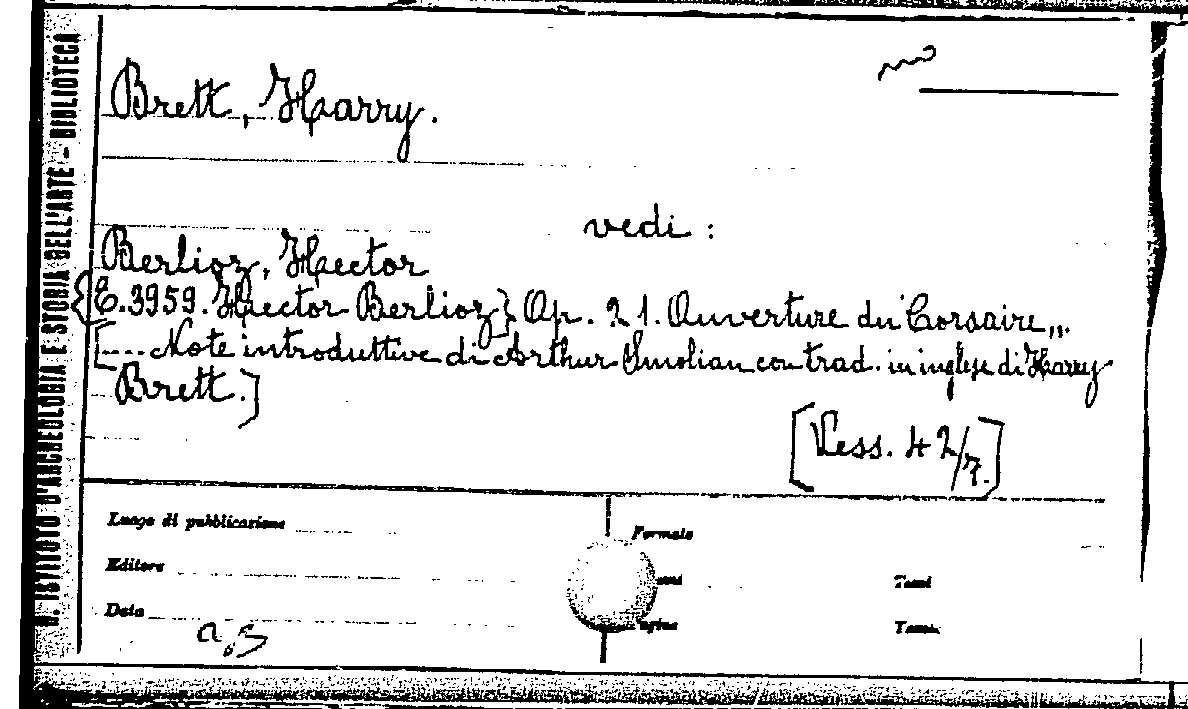 R. ISTITUTO D'ARCHEOLOGIA E STORIA DELL'ARTE - BIBLIOTECA
Brett, Harry.
vedi :
Berlioz, Hector
{E.3959. Hector Berlioz} Op. 21. Ouverture du Corsaire,,.
[... Note introduttive di Arthur Smolian con trad. in inglese di Harry
Brett.]
[Vess. 42/7.]
Luogo di pubblicazione
Formato
Editore
Tomi
Data
Pagine